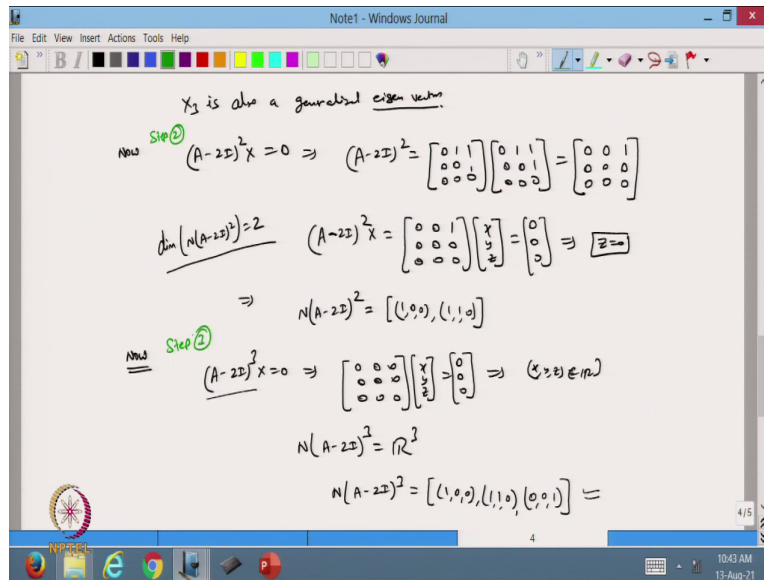 Note1 - Windows Journal
File Edit View Insert Actions Tools Help
B I
X₃ is also a generalized eigen vector.
Now Step ② (A-2I)²X = 0 ⇒ (A-2I)² = [0 1 1; 0 0 1; 0 0 0] [0 1 1; 0 0 1; 0 0 0] = [0 0 1; 0 0 0; 0 0 0]
dim(N(A-2I)²)=2 (A-2I)²X = [0 0 1; 0 0 0; 0 0 0] [x; y; z] = [0; 0; 0] ⇒ z=0
⇒ N(A-2I)² = [(1,0,0), (1,1,0)]
Now Step ② (A-2I)³X=0 ⇒ [0 0 0; 0 0 0; 0 0 0] [x; y; z] = [0; 0; 0] ⇒ (x,y,z) ∈ ℝ)
N(A-2I)³ = ℝ³
N(A-2I)³ = [(1,0,0), (1,1,0), (0,0,1)] =
4/5
4
NPTEL
10:43 AM
13-Aug-21